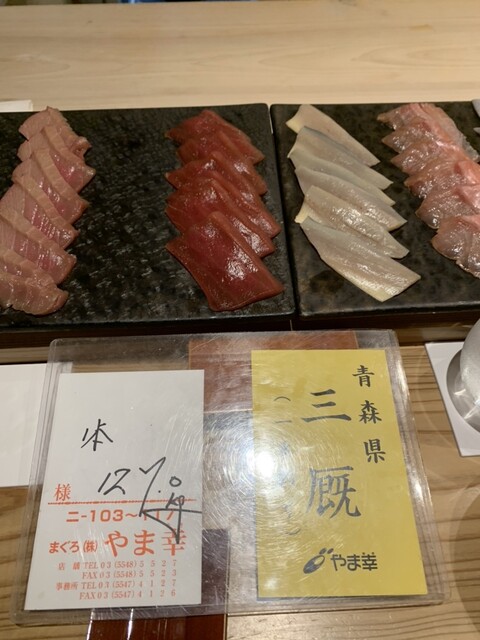 本
127.0
様
ニ-103~
まぐろ(株)やま幸
店舗 TEL 03 (5548) 5527
FAX 03 (5548) 5523
事務所 TEL 03 (5547) 4127
FAX 03 (5547) 4126
青森県
三厩
やま幸